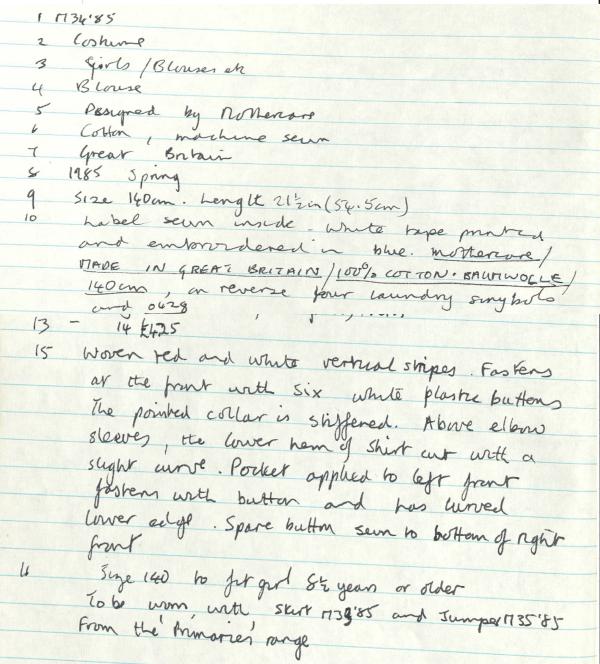 1 M34'85
2 Costume
3 Girls / Blouses etc
4 Blouse
5 Designed by Mothercare
6 Cotton, machine sewn
7 Great Britain
8 1985 Spring
9 Size 140cm. Length 21½in (54.5cm)
10 Label sewn inside - white tape printed
and embroidered in blue. mothercare /
MADE IN GREAT BRITAIN / 100% COTTON · BAUMWOLLE /
140cm, on reverse four laundry symbols
and 0428
13 - 14 £4.25
15 Woven red and white vertical stripes. Fastens
at the front with six white plastic buttons
The pointed collar is stiffened. Above elbow
sleeves, the lower hem of shirt cut with a
slight curve. Pocket applied to left front
fastens with button and has curved
lower edge. Spare button sewn to bottom of right
front
Size 140 to fit girl 8½ years or older
To be worn with skirt M33'85 and Jumper M35'85
From the 'Primaries' range